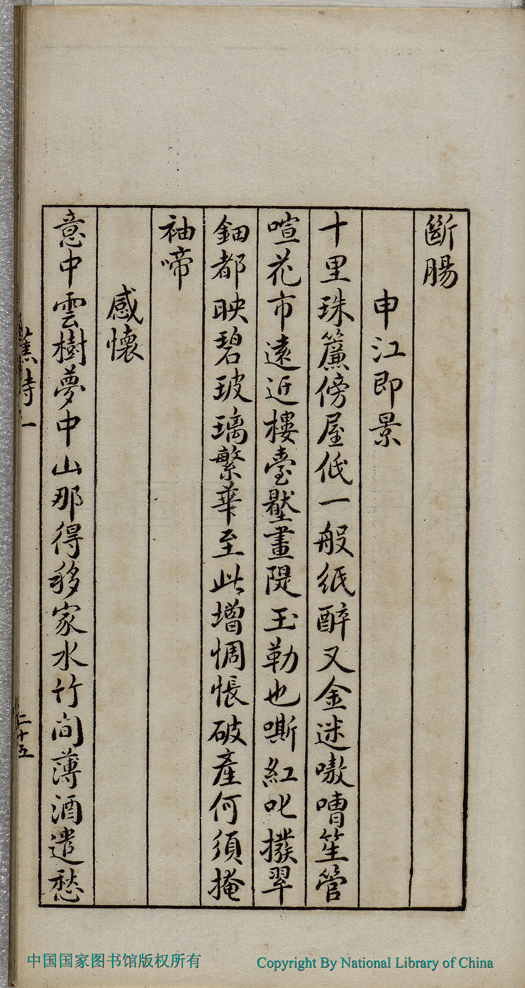 斷腸
申江即景
十里珠簾傍屋低一般紙醉又金迷嗷嘈笙管
喧花市遠近樓臺壓畫隄玉勒也嘶紅叱撥翠
鈿都映碧玻璃繁華至此增惆悵破產何須掩
袖啼
感懷
意中雲樹夢中山那得移家水竹間薄酒遣愁
蕉詩一
二十五
中国国家图书馆版权所有
Copyright By National Library of China